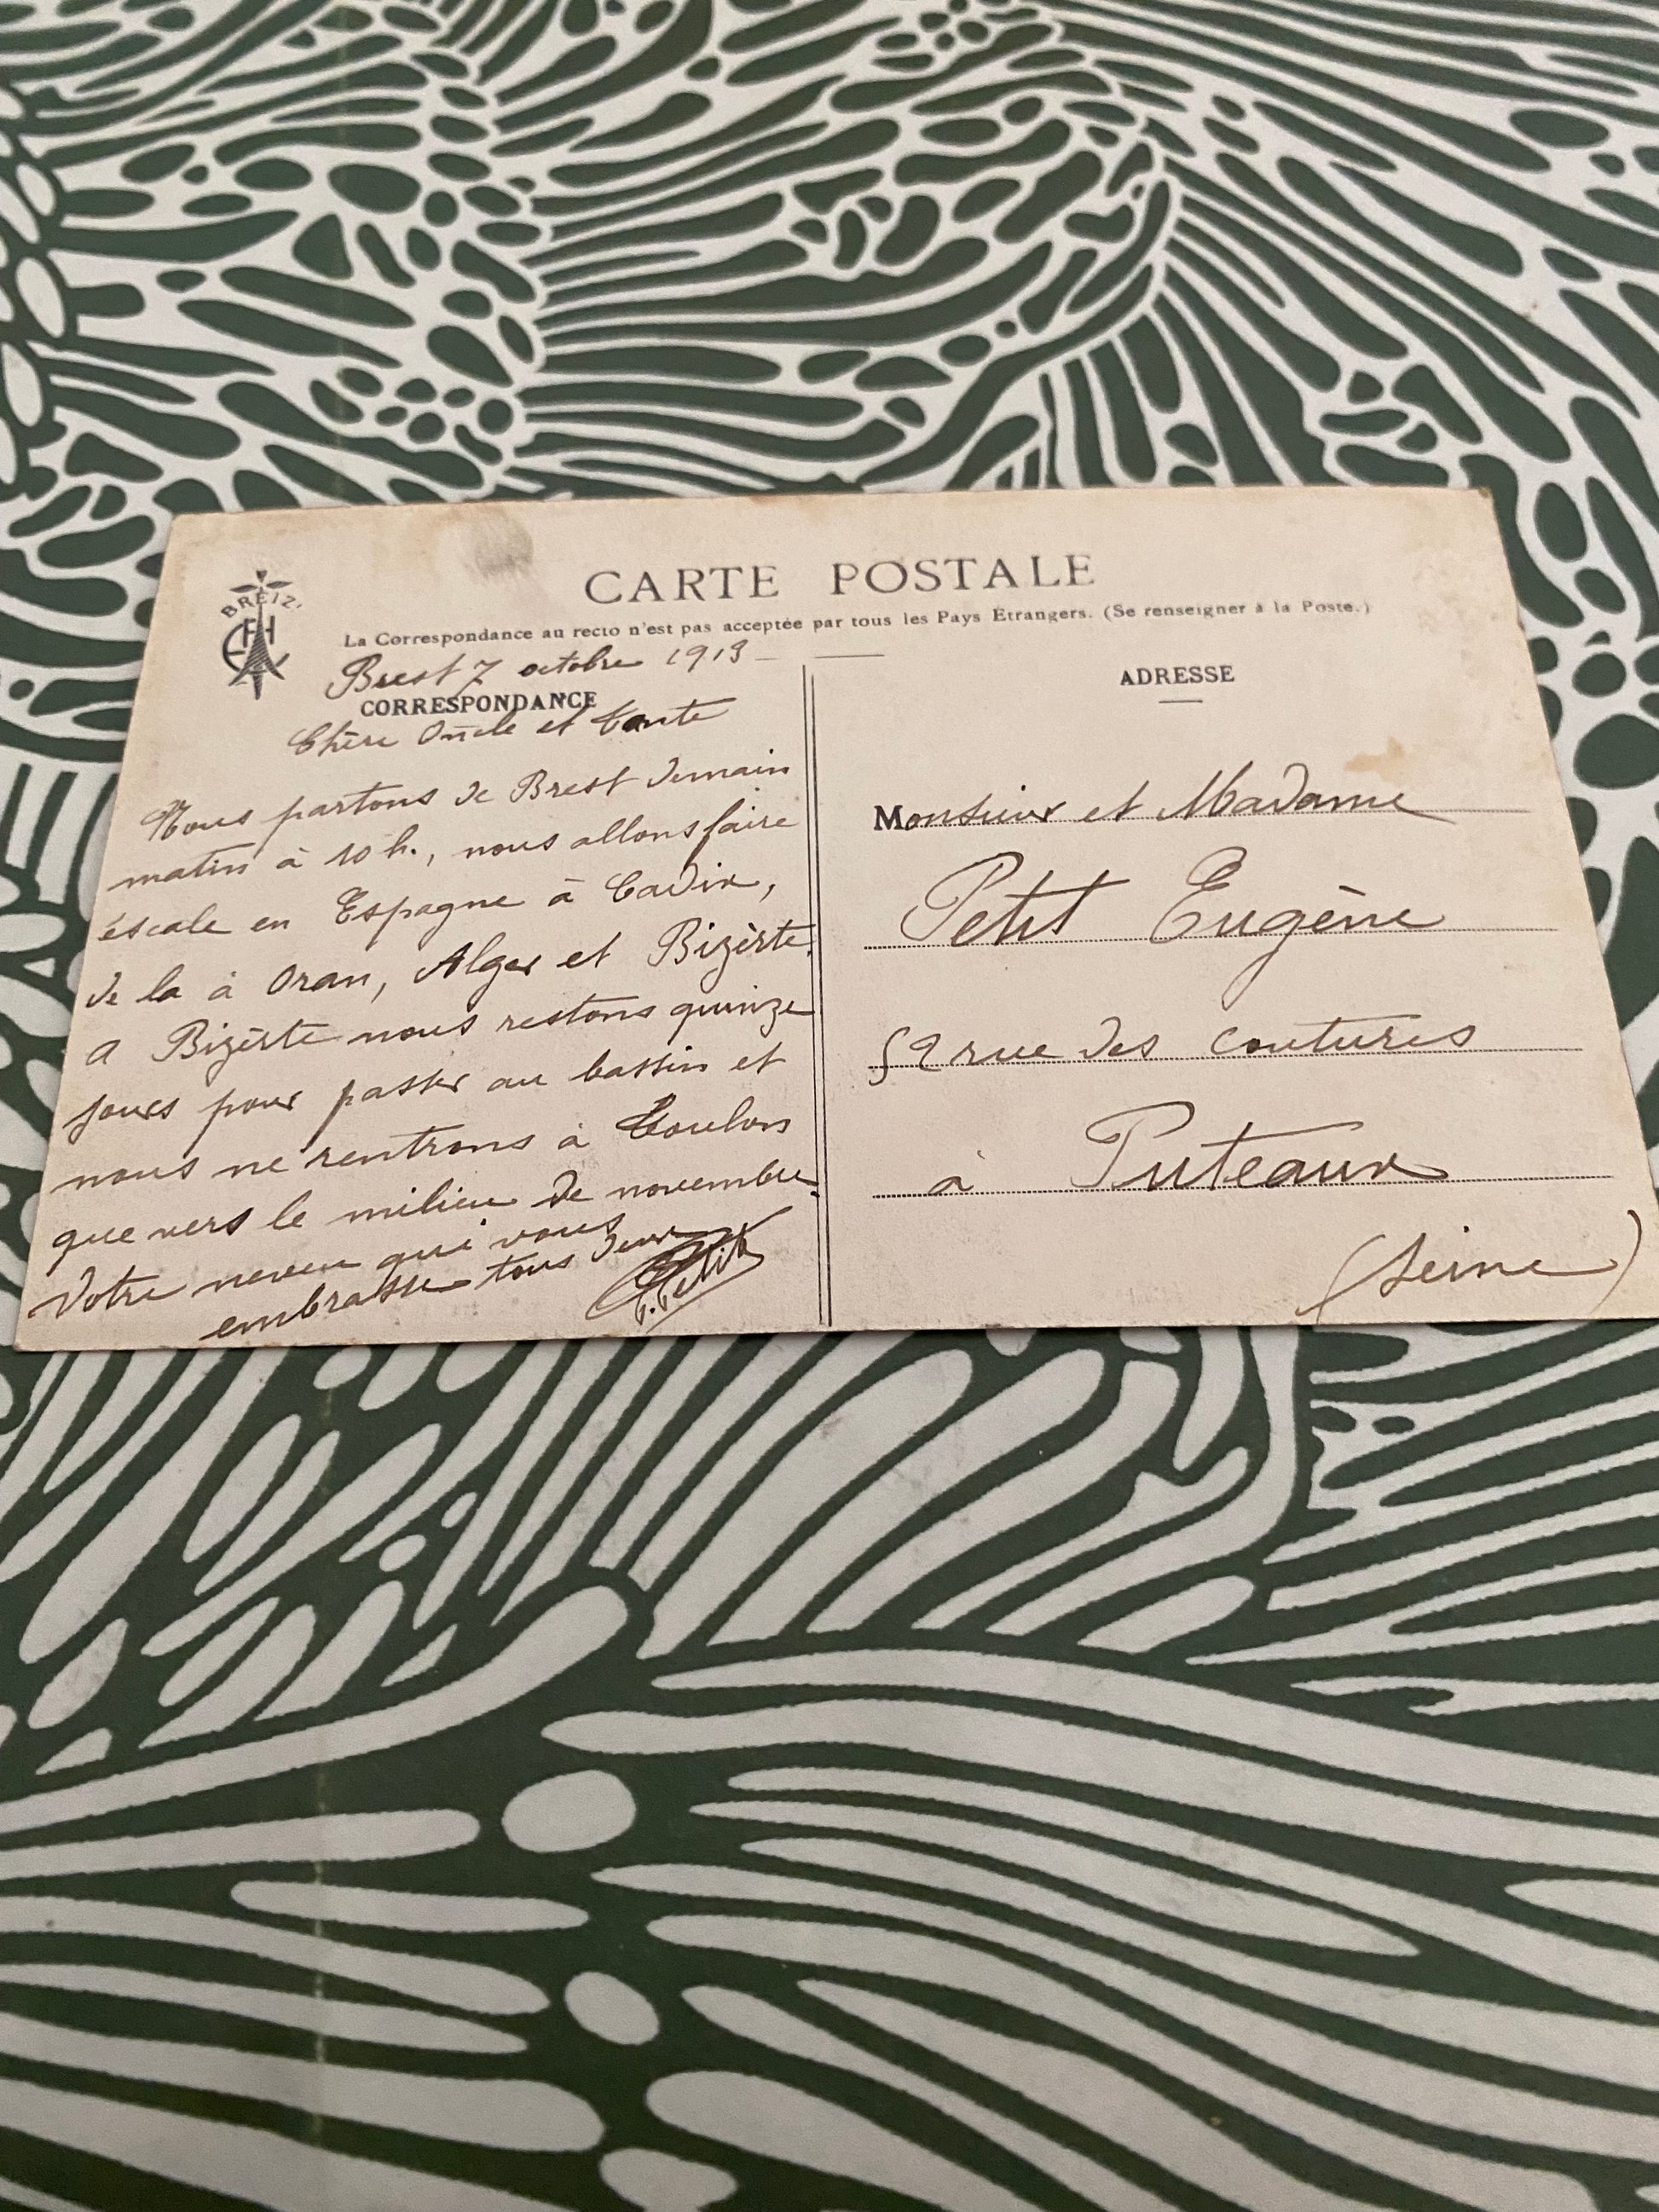 CARTE POSTALE
BREIZ
La Correspondance au recto n'est pas acceptée par tous les Pays Etrangers. (Se renseigner à la Poste.)
Brest 7 octobre 1913
CORRESPONDANCE
Chère Oncle et Tante
Nous partons de Brest demain
matin à 10 h., nous allons faire
éscale en Espagne à Cadix,
de la à Oran, Alger et Bizèrte.
a Bizèrte nous restons quinze
jours pour passer au bassin et
nous ne rentrons à Toulon
que vers le milieu de novembre.
Votre neveu qui vous
embrasse tous deux
Petit
ADRESSE
Monsieur et Madame
Petit Eugène
52 rue des coutures
à Puteaux
(Seine)